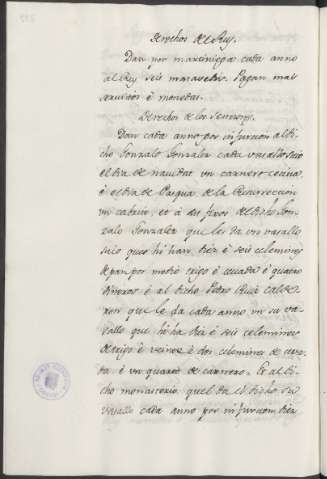 Derechos del Rey.
Dan por martiniega cada anno
al Rey seis maravedis. Pagan mas
servicios è monedas.
Derechos de los Sennores.
Dan cada anno por infurcion al di-
cho Gonzalo Gonzalez cada vasallo suio
el dia de navidat un carnero
è el dia de Pasqua de la Resurreccion
un cabrito, et à del dicho Gon-
zalo Gonzalez que le da un vasallo
suio que hi han, diez è seis celemines
de pan por medio trigo è cevada è quatro
dineros è al dicho Pedro Ruiz calde-
ron que le da cada anno un su va-
sallo que hi ha diez è seis celemines
de trigo è veinte è dos celemines de ceva-
da, è un quarto de carnero. Et al di-
cho monasterio, quel da el dicho su
vasallo cada anno por infurcion diez